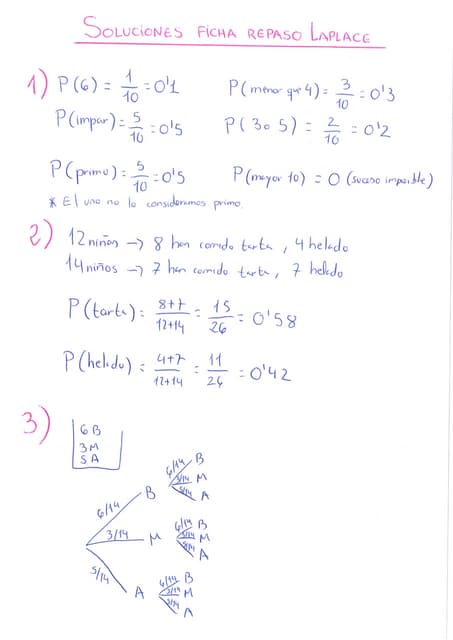 SOLUCIONES FICHA REPASO LAPLACE
1) P(6) = 1/10 = 0'1 P(menor que 4) = 3/10 = 0'3
P(impar) = 5/10 = 0'5 P(3 o 5) = 2/10 = 0'2
P(primo) = 5/10 = 0'5 P(mayor 10) = 0 (suceso imposible)
* El uno no lo consideramos primo.
2) 12 niñas → 8 han comido tarta, 4 helado
14 niños → 7 han comido tarta, 7 helado
P(tarta) = 8+7/12+14 = 15/26 = 0'58
P(helado) = 4+7/12+14 = 11/26 = 0'42
3) 6B
3M
5A
6/14 B 6/14 B
3/14 M
5/14 A
3/14 M 6/14 B
3/14 M
5/14 A
5/14 A 6/14 B
3/14 M
5/14 A